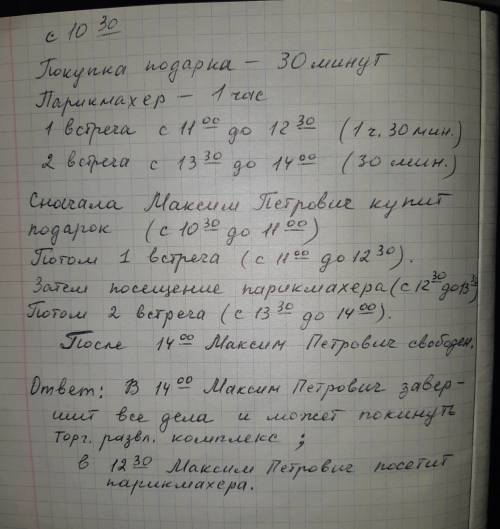 с 10 30
Покупка подарка – 30 минут
Парикмахер – 1 час
1 встреча с 11 00 до 12 30 (1 ч. 30 мин.)
2 встреча с 13 30 до 14 00 (30 мин.)
Сначала Максим Петрович купит
подарок (с 10 30 до 11 00)
Потом 1 встреча (с 11 00 до 12 30).
Затем посещение парикмахера (с 12 30 до 13 30)
Потом 2 встреча (с 13 30 до 14 00).
После 14 00 Максим Петрович свободен.
Ответ: В 14 00 Максим Петрович завер-
шит все дела и может покинуть
торг. развл. комплекс ;
в 12 30 Максим Петрович посетит
парикмахера.